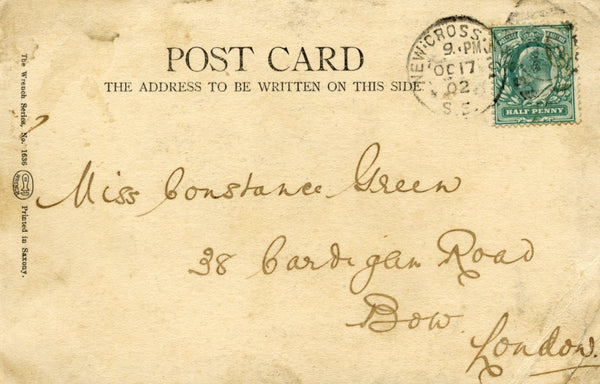 POST CARD
THE ADDRESS TO BE WRITTEN ON THIS SIDE
NEW CROSS.
9. PM
OC 17
02
S.E.
HALF PENNY
The Wrench Series, No. 1636
Printed in Saxony.
Miss Constance Green
38 Cardigan Road
Bow.
London.